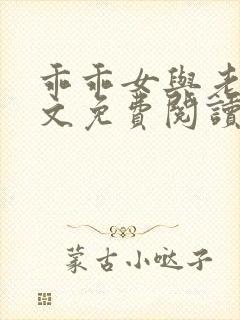 乖乖女與老
文免費閱讀
蒙古小哒子